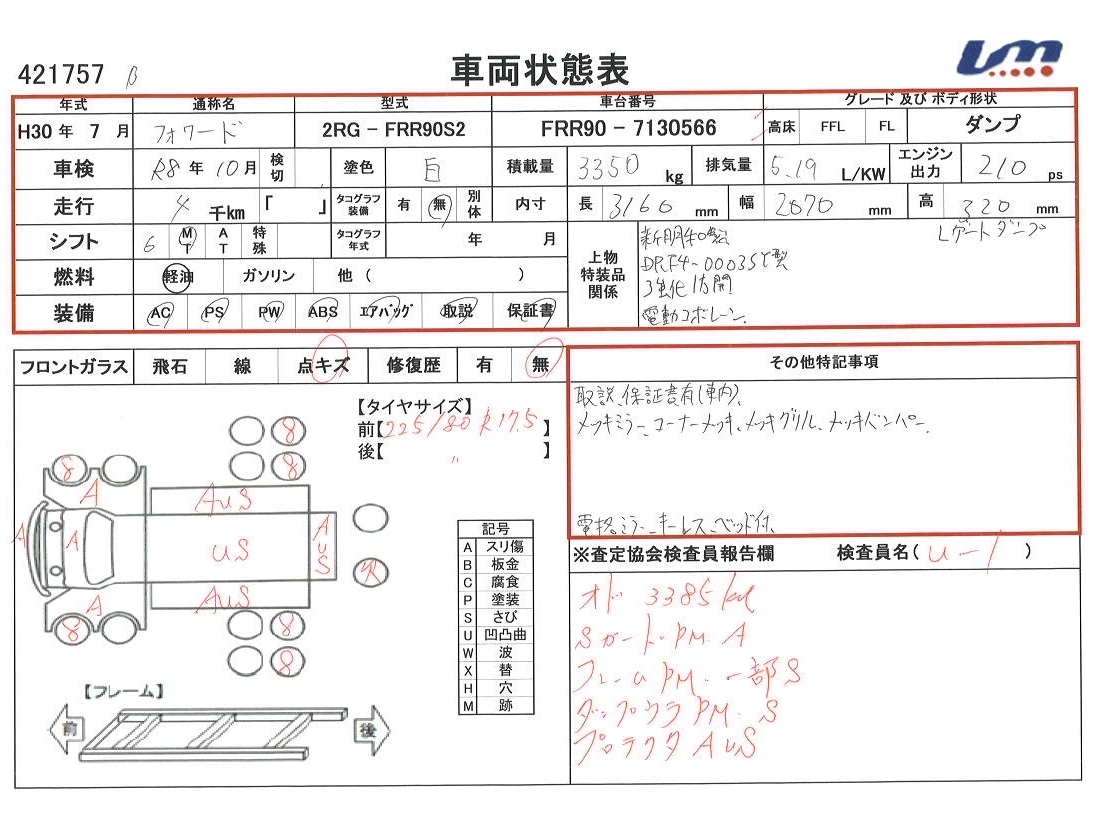 421757 β
車両状態表
UM
年式 通称名 型式 車台番号 グレード 及び ボディ形状
H30 年 7 月 フォワード 2RG - FRR90S2 FRR90 - 7130566 高床 FFL FL ダンプ
車検 R8 年 10 月 検切 塗色 白 積載量 3350 kg 排気量 5.19 L/KW エンジン出力 210 ps
走行 4 千km 「 」 タコグラフ装備 有 無 別体 内寸 長 3160 mm 幅 2070 mm 高 320 mm
シフト 6 MT AT 特殊 タコグラフ年式 年 月 上物特装品関係 新明和製 Lゲートダンプ
DR
燃料 軽油 ガソリン 他 ( ) 3 強化 防開
装備 AC PS PW ABS エアバッグ 取説 保証書 電動コボレーン.
フロントガラス 飛石 線 点キズ 修復歴 有 無 その他特記事項
取説、保証書有(車内)、
メッキミラー、コーナーメッキ、メッキグリル、メッキバンパー.
電格ミラー、キーレス、ベッド付、
【タイヤサイズ】
前【225/80 R 17.5】
後【 〃 】
8
8
8 A AuS
A A uS AuS
A AuS
8 8
8
【フレーム】
前 後
記号
A スリ傷
B 板金
C 腐食
P 塗装
S さび
U 凹凸曲
W 波
X 替
H 穴
M 跡
※査定協会検査員報告欄 検査員名( u-1 )
オド 3385 km
Sガード・PM. A
フレームPM. 一部S
ダンプウラPM. S
プロテクタ AuS